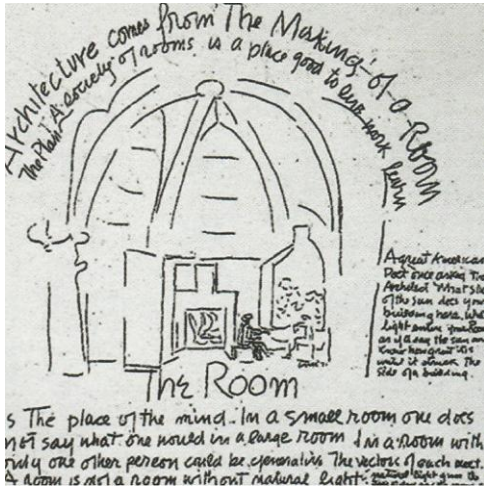 Architecture comes from The Making of a Room
The Plan A society of rooms is a place good to live work learn
A great American
Poet once asked the
Architect What slice
of the sun does your
building have. What
light enters your Room
as if to say the sun never
knew how great it is
until it struck the
side of a building.
The Room
s The place of the mind. In a small room one does
not say what one would in a large room In a room with
only one other person could be generative The vectors of each meet.
A room is not a room without natural light.
natural light gives the